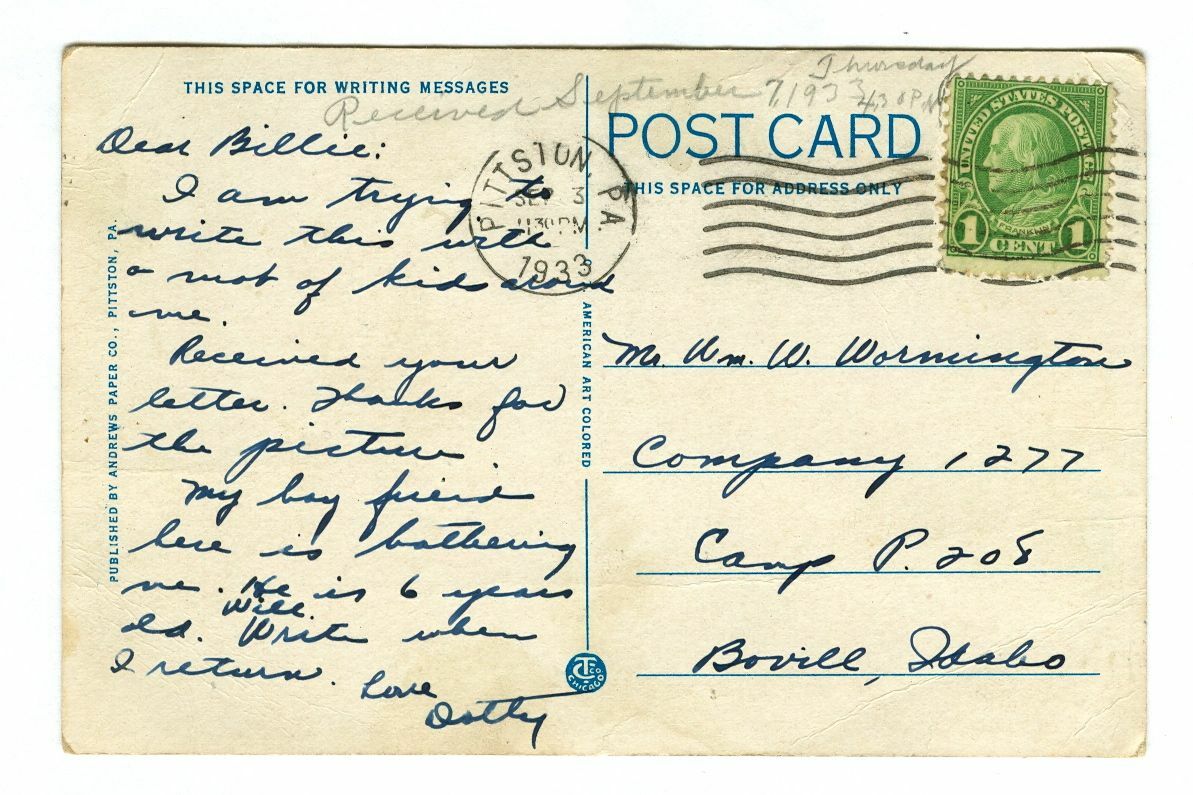 THIS SPACE FOR WRITING MESSAGES
Received September 7, 1933
Thursday
4:30 P.M.
Dear Billie:
I am trying to
write this with
a mob of kids around
me.
Received your
letter. Thanks for
the picture.
My boy friend
here is bothering
me. He is 6 years
old. Will Write when
I return.
Love
Dotty
PUBLISHED BY ANDREWS PAPER CO., PITTSTON, PA.
PITTSTON, PA.
SEP 3
1130PM
1933
AMERICAN ART COLORED
CTCO
CHICAGO
POST CARD
THIS SPACE FOR ADDRESS ONLY
UNITED STATES POSTAGE
FRANKLIN
1 CENT 1
Mr. Wm. W. Wormington
Company 1277
Camp P. 208
Bovill, Idaho